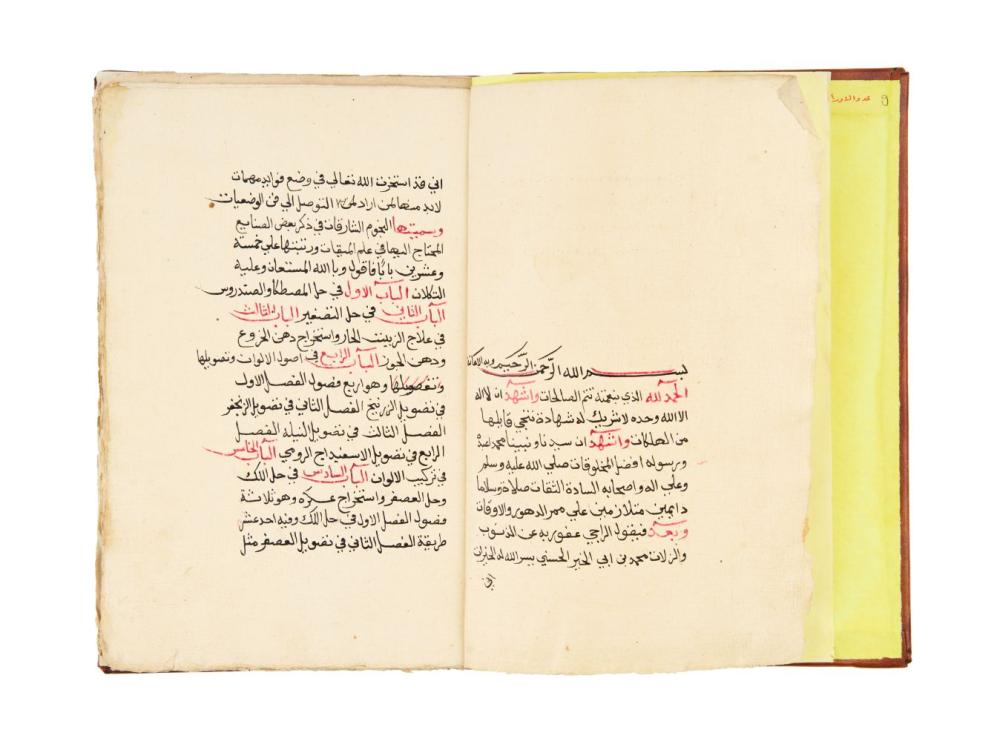 بسم الله الرحمن الرحيم وبه الاعانة
الحمد لله الذي بنعمته تتم الصالحات واشهد ان لا اله
الا الله وحده لا شريك له شهادة تنجي قايلها
من الهلكات واشهد ان سيدنا ونبينا محمد عبده
ورسوله افضل المخلوقات صلي الله عليه وسلم
وعلي اله واصحابه السادة الثقات صلاة وسلاما
دايمين متلازمين علي ممر الدهور والاوقات
وبعد فيقول الراجي عفو ربه عن الذنوب
والزلات محمد بن ابي الخير الحسني يسر الله له الخيرات
اني
اني قد استخرت الله تعالي في وضع فوايد مهمات
لابد منها لمن اراد التوصل الي فن الوضعيات
وسميتها النجوم الشارقات في ذكر بعض الصنايع
المحتاج اليها في علم الميقات ورتبتها علي خمسة
وعشرين بابا فاقول وبا الله المستعان وعليه
التكلان الباب الاول في حل المصطكا والصندروس
الباب الثاني في حل القصدير الباب الثالث
في علاج الزيبت الحار واستخراج دهن الخروع
ودهن الجوز الباب الرابع في اصول الالوان وتصويلها
وتفصيلها وهو اربع فصول الفصل الاول
في تصويل الزرنيخ الفصل الثاني في تصويل الزنجفر
الفصل الثالث في تصويل النيله الفصل
الرابع في تصويل الاسفيداج الرومي الباب الخامس
في تركيب الالوان الباب السادس في حل اللك
وحل العصفر واستخراج عكره وهو ثلاثة
فصول الفصل الاول في حل اللك وفيه احد عشر
طريقة الفصل الثاني في تصويل العصفر مثل